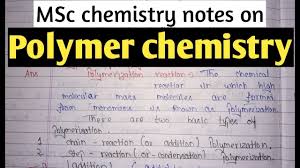 MSc chemistry notes on
Polymer chemistry
Ans Polymerization reaction :- The chemical
reaction in which high
molecular mass molecules are formed
from monomers is known as Polymerization.
There are two basic types of
Polymerization.
1 chain - reaction (or addition) Polymerization.
2 step - reaction (or - condensation) Polymerization
(addition)